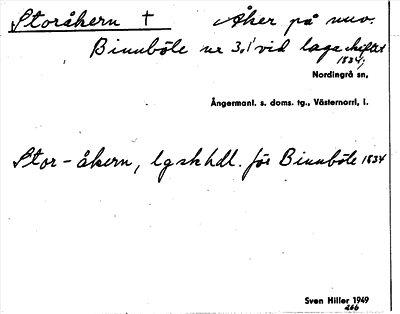 Storåkern † Åker på nuv.
Binnböle nr 3,1 vid laga skiftet
1834;
Nordingrå sn,
Ångermanl. s. doms. tg., Västernorrl, l.
Stor-åkern, lgskhdl. för Binnböle 1834
Sven Hiller 1949
266